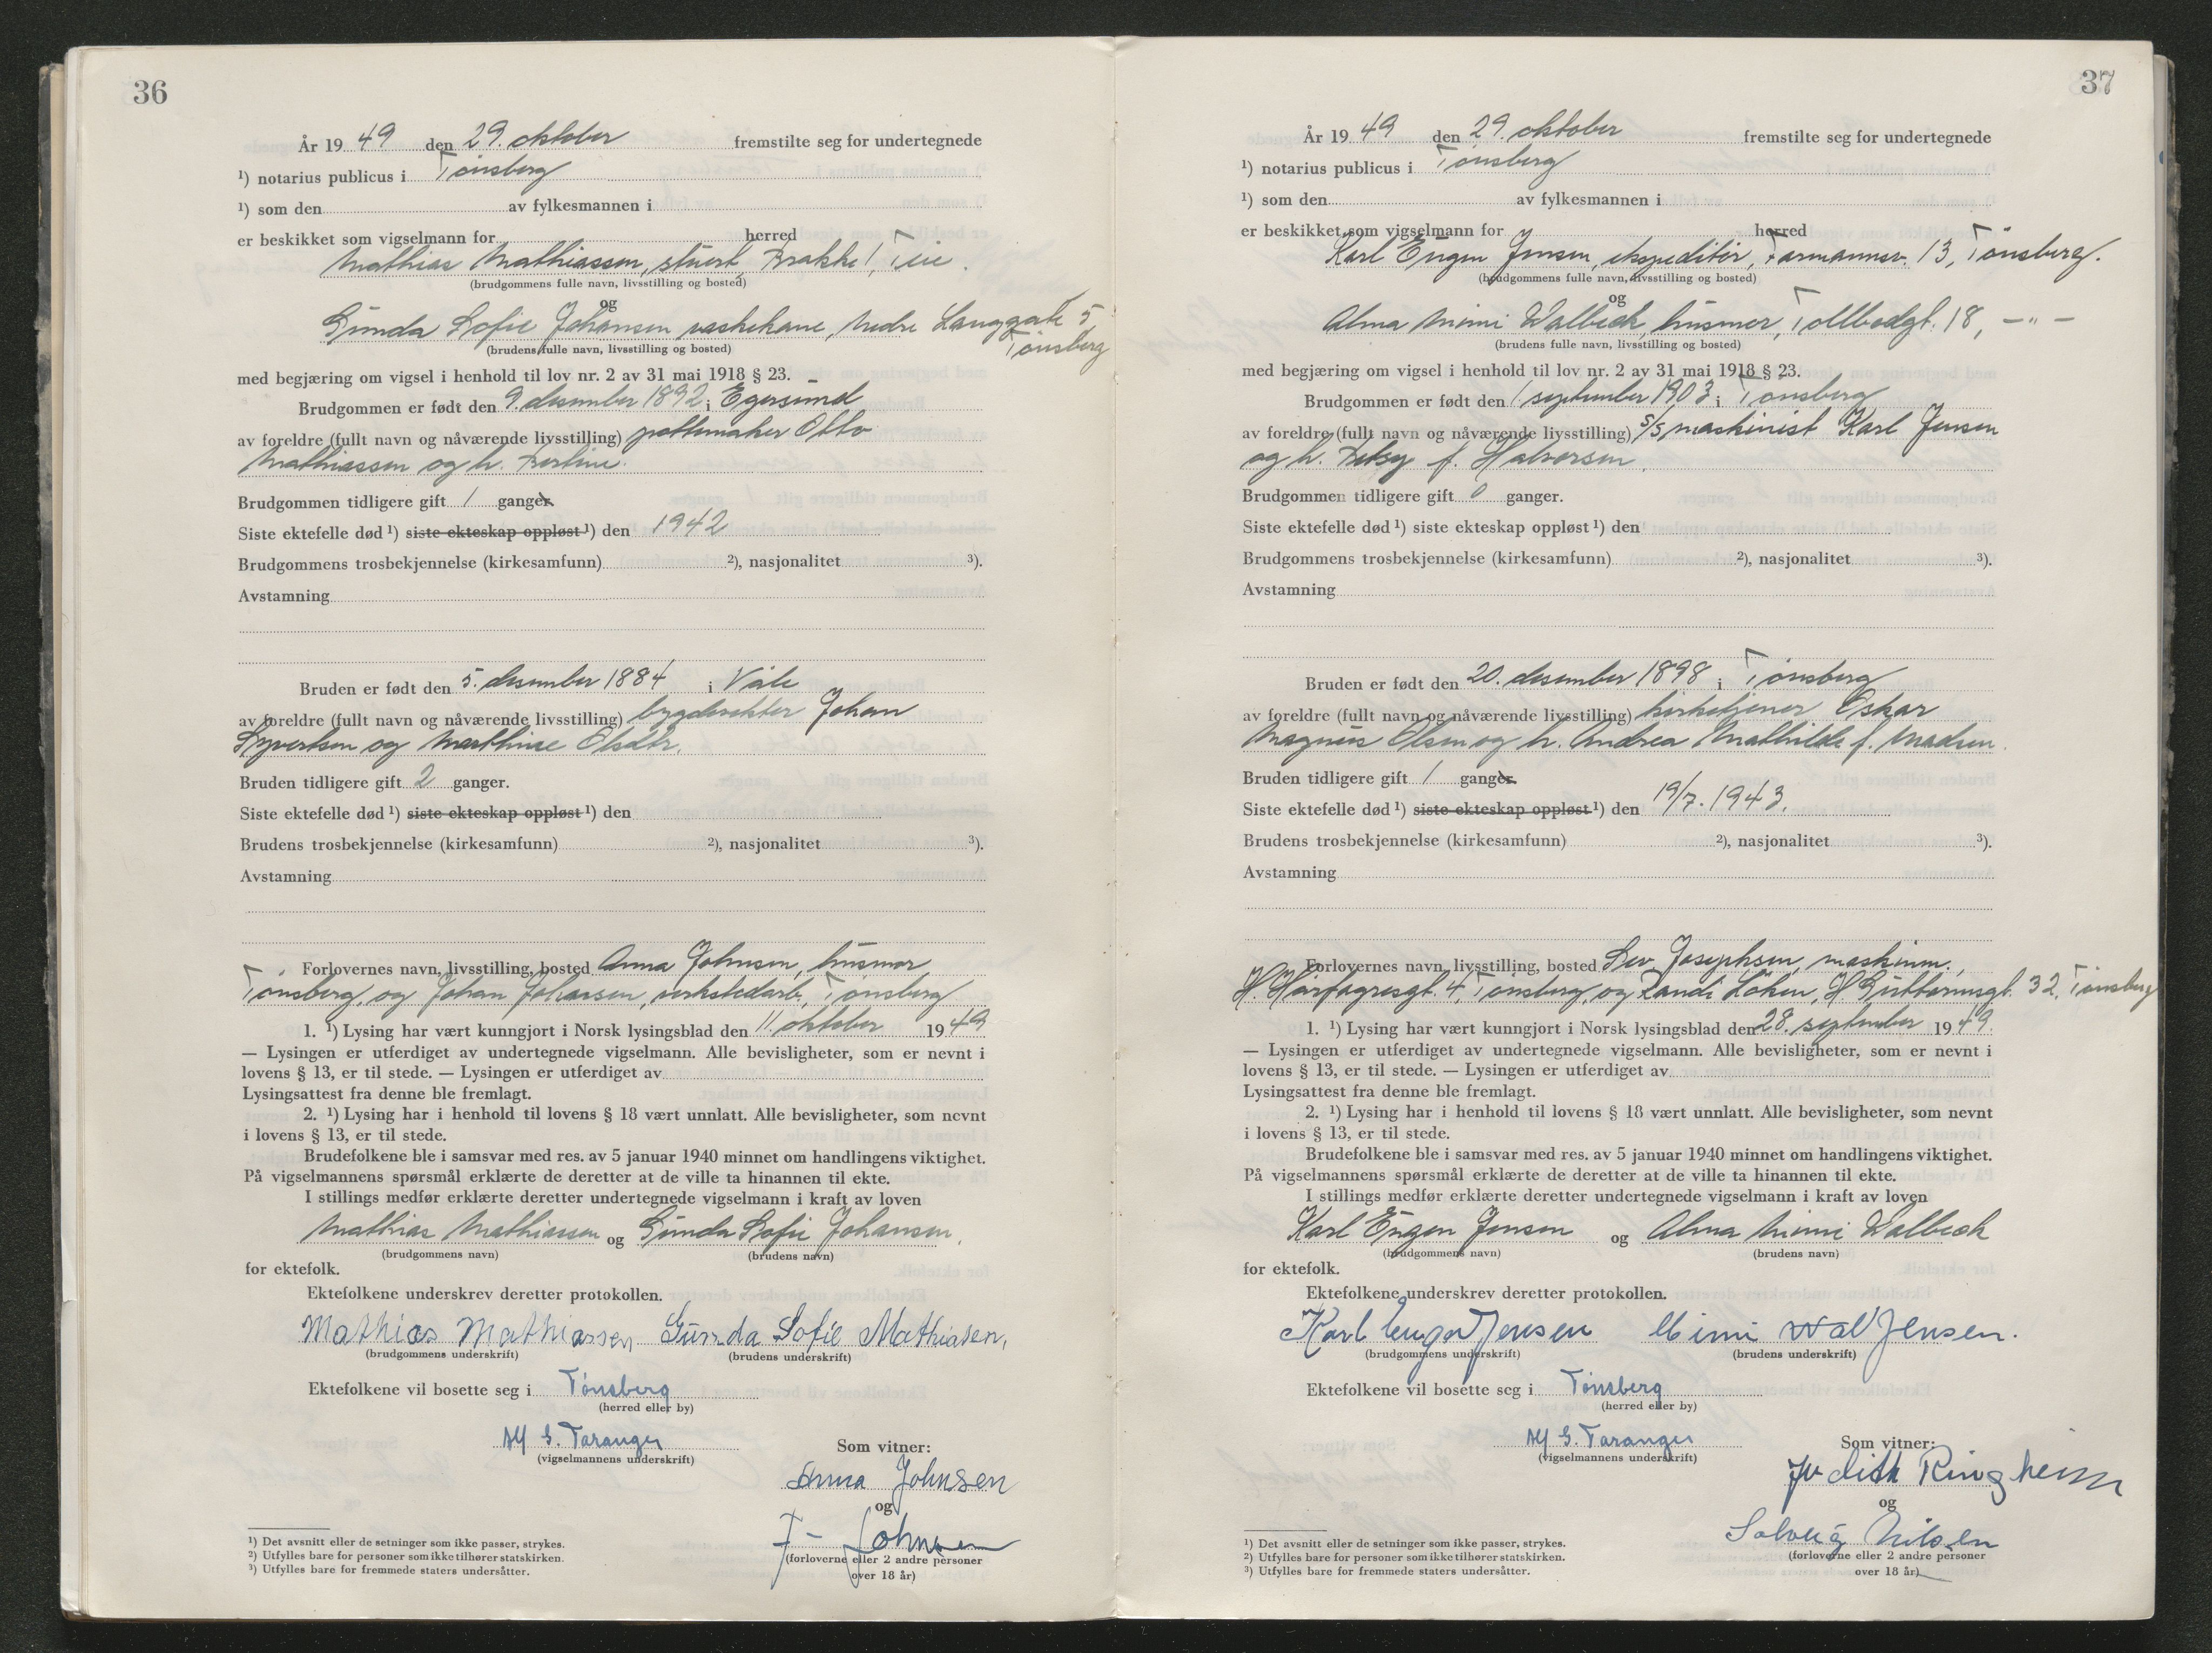 36
År 19 49 den 29. oktober fremstilte seg for undertegnede
¹) notarius publicus i Tønsberg
¹) som den av fylkesmannen i
er beskikket som vigselmann for herred
Mathias Mathiassen, stuert, Brakke 1, Teie.
(brudgommens fulle navn, livsstilling og bosted)
og
Gunda Sofie Johansen vaskekone, Nedre Langgate 5
Tønsberg
(brudens fulle navn, livsstilling og bosted)
med begjæring om vigsel i henhold til lov nr. 2 av 31 mai 1918 § 23.
Brudgommen er født den 9. desember 1892 i Egersund
av foreldre (fullt navn og nåværende livsstilling) pottemaker Otto
Mathiassen og h. Bertine.
Brudgommen tidligere gift 1 ganger.
Siste ektefelle død ¹) siste ekteskap oppløst ¹) den 1942
Brudgommens trosbekjennelse (kirkesamfunn) ²), nasjonalitet ³).
Avstamning
Bruden er født den 5. desember 1884 i Våle
av foreldre (fullt navn og nåværende livsstilling) Johan
Syvertsen og Mathine Olsdtr.
Bruden tidligere gift 2 ganger.
Siste ektefelle død ¹) siste ekteskap oppløst ¹) den
Brudens trosbekjennelse (kirkesamfunn) ²), nasjonalitet ³).
Avstamning
Forlovernes navn, livsstilling, bosted Anna Johnsen, husmor,
Tønsberg, og Johan Johansen, verkstedarb., Tønsberg
1. ¹) Lysing har vært kunngjort i Norsk lysingsblad den 11. oktober 19 49
— Lysingen er utferdiget av undertegnede vigselmann. Alle bevisligheter, som er nevnt i
lovens § 13, er til stede. — Lysingen er utferdiget av
Lysingsattest fra denne ble fremlagt.
2. ¹) Lysing har i henhold til lovens § 18 vært unnlatt. Alle bevisligheter, som nevnt
i lovens § 13, er til stede.
Brudefolkene ble i samsvar med res. av 5 januar 1940 minnet om handlingens viktighet.
På vigselmannens spørsmål erklærte de deretter at de ville ta hinannen til ekte.
I stillings medfør erklærte deretter undertegnede vigselmann i kraft av loven
Mathias Mathiassen og Gunda Sofie Johansen.
(brudgommens navn) (brudens navn)
for ektefolk.
Ektefolkene underskrev deretter protokollen.
Mathias Mathiassen Gunda Sofie Mathiasen,
(brudgommens underskrift) (brudens underskrift)
Ektefolkene vil bosette seg i Tønsberg
(herred eller by)
Alf G. Taranger
(vigselmannens underskrift)
Som vitner:
Anna Johnsen
og
J. Johnsen
(forloverne eller 2 andre personer
over 18 år)
¹) Det avsnitt eller de setninger som ikke passer, strykes.
²) Utfylles bare for personer som ikke tilhører statskirken.
³) Utfylles bare for fremmede staters undersåtter.
37
År 19 49 den 29. oktober fremstilte seg for undertegnede
¹) notarius publicus i Tønsberg
¹) som den av fylkesmannen i
er beskikket som vigselmann for herred
Karl Eugen Jensen, ekspeditør, Farmannsv. 13, Tønsberg.
(brudgommens fulle navn, livsstilling og bosted)
og
Alma Mimi Walbeck, husmor, Tollbodgt. 18, —"—
(brudens fulle navn, livsstilling og bosted)
med begjæring om vigsel i henhold til lov nr. 2 av 31 mai 1918 § 23.
Brudgommen er født den 1 september 1903 i Tønsberg
av foreldre (fullt navn og nåværende livsstilling) s/s maskinist Karl Jensen
og h. Betsy f. Halvorsen.
Brudgommen tidligere gift 0 ganger.
Siste ektefelle død ¹) siste ekteskap oppløst ¹) den
Brudgommens trosbekjennelse (kirkesamfunn) ²), nasjonalitet ³).
Avstamning
Bruden er født den 20. desember 1898 i Tønsberg
av foreldre (fullt navn og nåværende livsstilling) kirketjener Oskar
Magnus Olsen og h. Andrea Mathilde f. Madsen.
Bruden tidligere gift 1 ganger.
Siste ektefelle død ¹) siste ekteskap oppløst ¹) den 19/7. 1943.
Brudens trosbekjennelse (kirkesamfunn) ²), nasjonalitet ³).
Avstamning
Forlovernes navn, livsstilling, bosted Josephsen, maskinm.,
H. Hårfagresgt. 4, Tønsberg, og Randi Løken, H. Guttormsgt. 32, Tønsberg
1. ¹) Lysing har vært kunngjort i Norsk lysingsblad den 28. september 19 49.
— Lysingen er utferdiget av undertegnede vigselmann. Alle bevisligheter, som er nevnt i
lovens § 13, er til stede. — Lysingen er utferdiget av
Lysingsattest fra denne ble fremlagt.
2. ¹) Lysing har i henhold til lovens § 18 vært unnlatt. Alle bevisligheter, som nevnt
i lovens § 13, er til stede.
Brudefolkene ble i samsvar med res. av 5 januar 1940 minnet om handlingens viktighet.
På vigselmannens spørsmål erklærte de deretter at de ville ta hinannen til ekte.
I stillings medfør erklærte deretter undertegnede vigselmann i kraft av loven
Karl Eugen Jensen og Alma Mimi Walbeck
(brudgommens navn) (brudens navn)
for ektefolk.
Ektefolkene underskrev deretter protokollen.
Karl Eugen Jensen Mimi Wal Jensen.
(brudgommens underskrift) (brudens underskrift)
Ektefolkene vil bosette seg i Tønsberg
(herred eller by)
Alf G. Taranger
(vigselmannens underskrift)
Som vitner:
Judith Ringheim
og
Solveig Nilsen
(forloverne eller 2 andre personer
over 18 år)
¹) Det avsnitt eller de setninger som ikke passer, strykes.
²) Utfylles bare for personer som ikke tilhører statskirken.
³) Utfylles bare for fremmede staters undersåtter.